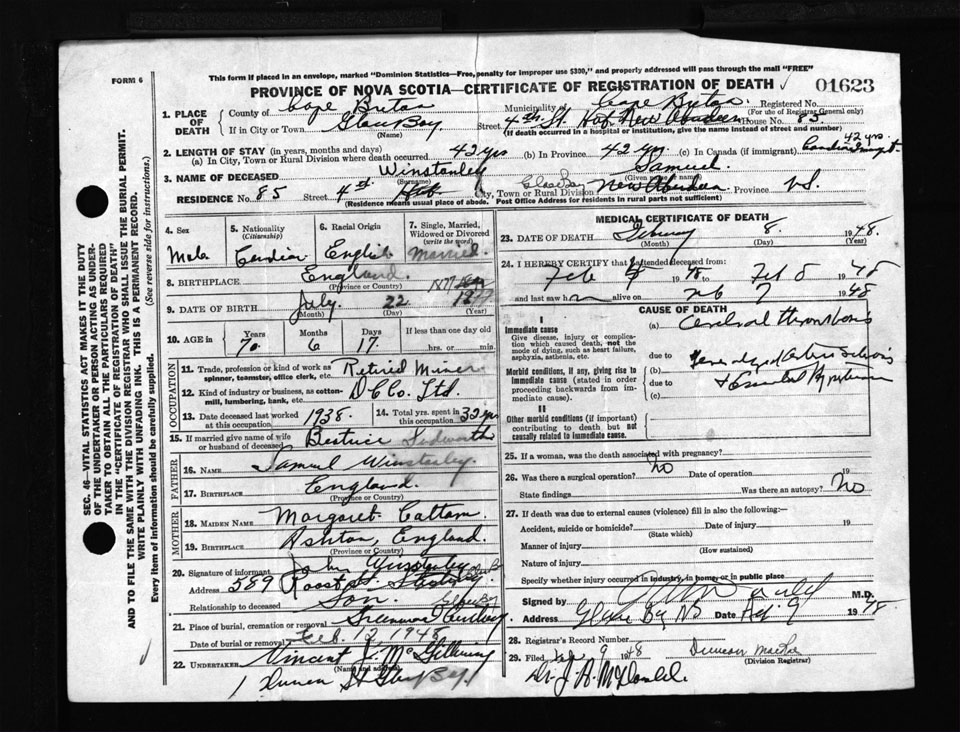 This form if placed in an envelope, marked "Dominion Statistics—Free, penalty for improper use $300," and properly addressed will pass through the mail "FREE"
FORM 6
PROVINCE OF NOVA SCOTIA—CERTIFICATE OF REGISTRATION OF DEATH
01623
1. PLACE OF DEATH
County of Cape Breton Municipality of Cape Breton Registered No.
(For use of Registrar General only)
If in City or Town Glace Bay Street 4th St. New Aberdeen House No. 85
(Name) (If death occurred in a hospital or institution, give the name instead of street and number)
2. LENGTH OF STAY (in years, months and days)
(a) In City, Town or Rural Division where death occurred 42 yrs (b) In Province 42 yrs (c) In Canada (if immigrant) 42 yrs
3. NAME OF DECEASED Winstanley Samuel
(Surname) (Given names)
RESIDENCE No. 85 Street 4th City, Town or Rural Division Glace Bay New Aberdeen Province N.S.
(Residence means usual place of abode. Post Office Address for residents in rural parts not sufficient)
4. Sex Male
5. Nationality (Citizenship) Canadian
6. Racial Origin English
7. Single, Married, Widowed or Divorced (write the word) Married
8. BIRTHPLACE England
(Province or Country)
9. DATE OF BIRTH July 22 1877
(Month) (Day) (Year)
10. AGE in Years Months Days If less than one day old
70 6 17 hrs. or min.
OCCUPATION
11. Trade, profession or kind of work as spinner, teamster, office clerk, etc. Retired Miner
12. Kind of industry or business, as cotton-mill, lumbering, bank, etc. D C Co. Ltd.
13. Date deceased last worked at this occupation 1938.
14. Total yrs. spent in this occupation 32 yrs
15. If married give name of wife or husband of deceased Beatrice
FATHER
16. NAME Samuel Winstanley
17. BIRTHPLACE England.
(Province or Country)
MOTHER
18. MAIDEN NAME Margaret Cattam.
19. BIRTHPLACE Ashton, England.
(Province or Country)
20. Signature of informant John Winstanley
Address 589 Roost St. Glace Bay
Relationship to deceased Son.
21. Place of burial, cremation or removal Greenwood Cemetery
Date of burial or removal Feb. 12, 1948
22. UNDERTAKER Vincent J. McGillivray
(Name and address)
1 Union St Glace Bay.
MEDICAL CERTIFICATE OF DEATH
23. DATE OF DEATH February 8. 1948.
(Month) (Day) (Year)
24. I HEREBY CERTIFY that I attended deceased from:
Feb 4 1948 to Feb 8 1948
and last saw him alive on Feb 7 1948
CAUSE OF DEATH
I
Immediate cause
Give disease, injury or complication which caused death, not the mode of dying, such as heart failure, asphyxia, asthenia, etc.
(a) Cerebral thrombosis
due to
Morbid conditions, if any, giving rise to immediate cause (stated in order proceeding backwards from immediate cause).
(b) Generalized Arteriosclerosis
due to + Essential Hypertension
(c)
II
Other morbid conditions (if important) contributing to death but not causally related to immediate cause.
25. If a woman, was the death associated with pregnancy?
26. Was there a surgical operation? No Date of operation 19
State findings Was there an autopsy? No
27. If death was due to external causes (violence) fill in also the following:—
Accident, suicide or homicide? Date of injury 19
(State which)
Manner of injury
(How sustained)
Nature of injury
Specify whether injury occurred in industry, in home, or in public place
Signed by M.D.
Address Glace Bay NS Date Feb 9 1948
28. Registrar's Record Number
29. Filed Feb 9 1948 Duncan MacRae
(Division Registrar)
Dr. J. R. McDonald.
SEC. 46—VITAL STATISTICS ACT MAKES IT THE DUTY OF THE UNDERTAKER OR PERSON ACTING AS UNDERTAKER TO OBTAIN ALL THE PARTICULARS REQUIRED IN THE "CERTIFICATE OF REGISTRATION OF DEATH" AND TO FILE THE SAME WITH THE DIVISION REGISTRAR WHO SHALL ISSUE THE BURIAL PERMIT.
WRITE PLAINLY WITH UNFADING INK. THIS IS A PERMANENT RECORD.
Every item of information should be carefully supplied. (See reverse side for instructions.)